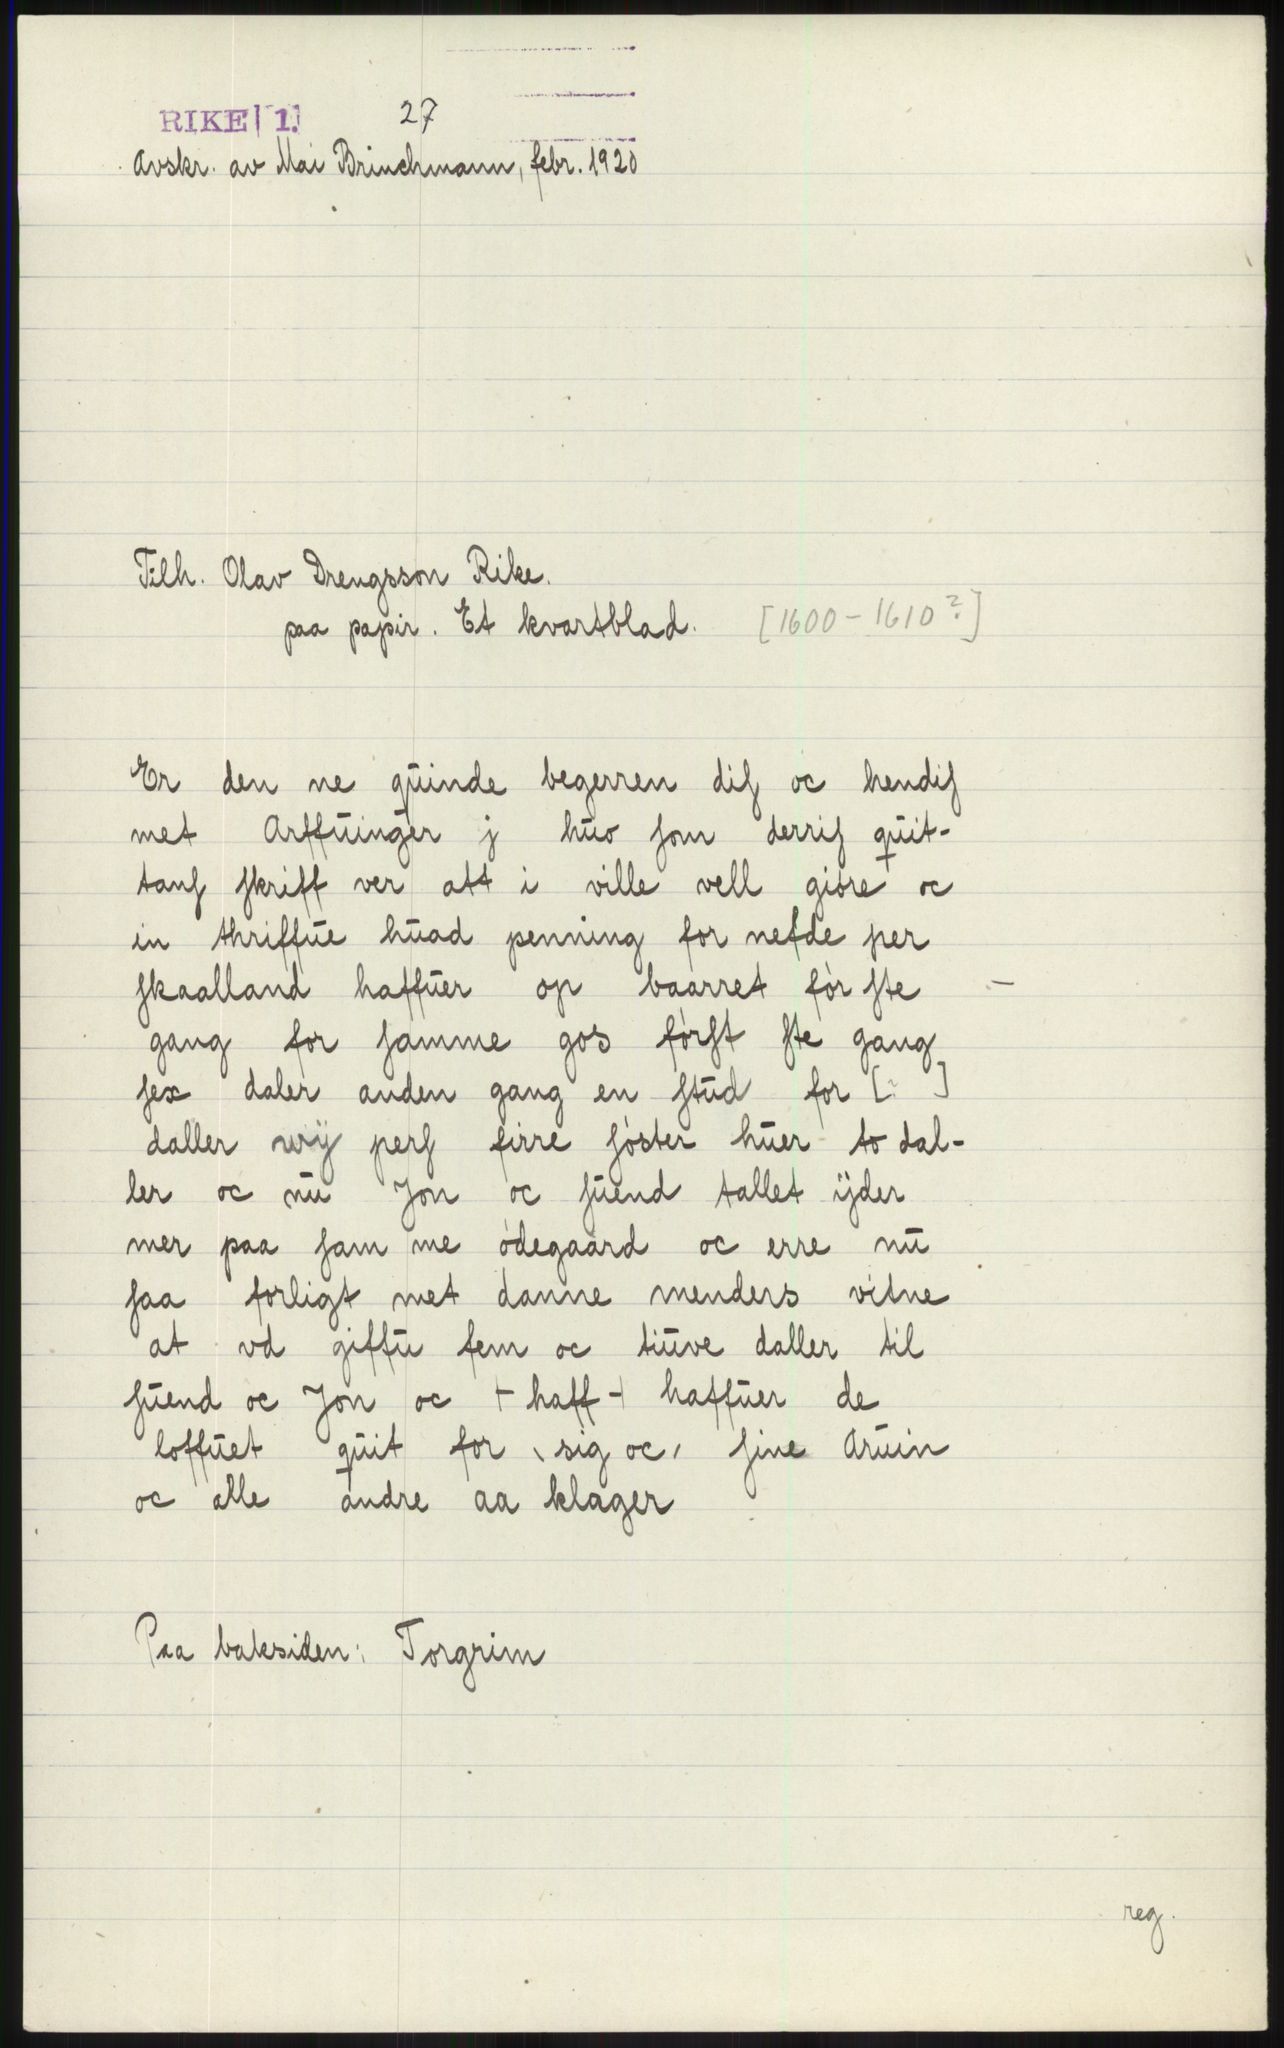 RIKE 1. 27
Avskr. av Mai Brinchmann, febr. 1920
Tilh. Olav Drengsson Rike.
paa papir. Et kvartblad. [1600-1610?]
Er den ne qūinde begerren dis oc hendis
met Arffūinger j hūo som derris qūit-
tans skriff ver att i ville vell giøre oc
in thriffūe hūad penning for nefde per
skaalland haffūer op baarret før ste –
gang for samme gos først ste gang
sex daler anden gang en stūd for [ ]
daller wÿ pers firre søster hūer to dal-
ler oc nū Jon oc sūend tallet ÿder
mer paa sam me ødegaard oc erre nū
saa forligt met danne menders vitne
at vd giffū fem oc tiūve daller til
sūend oc Jon oc ⊢ haff ⊣ haffūer de
loffūet qūit for ‵sig oc′ sine Arūin
oc alle andre aa klager
Paa baksiden: Torgrim
reg.